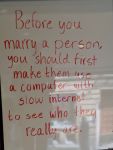 Before you
marry a person,
you should first
make them use
a computer with
slow internet
to see who they
really are.